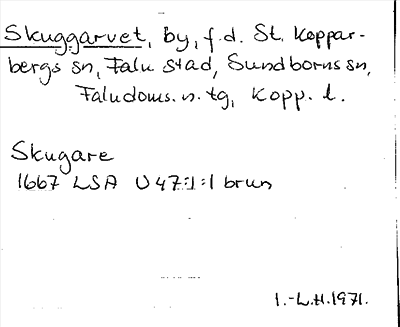 Skuggarvet, by, f.d. St. Koppar-
bergs sn, Falu stad, Sundborns sn,
Faludoms. n. tg, Kopp. l.
Skugare
1667 LSA U 47:1:1 brun
I.-L.H. 1971.